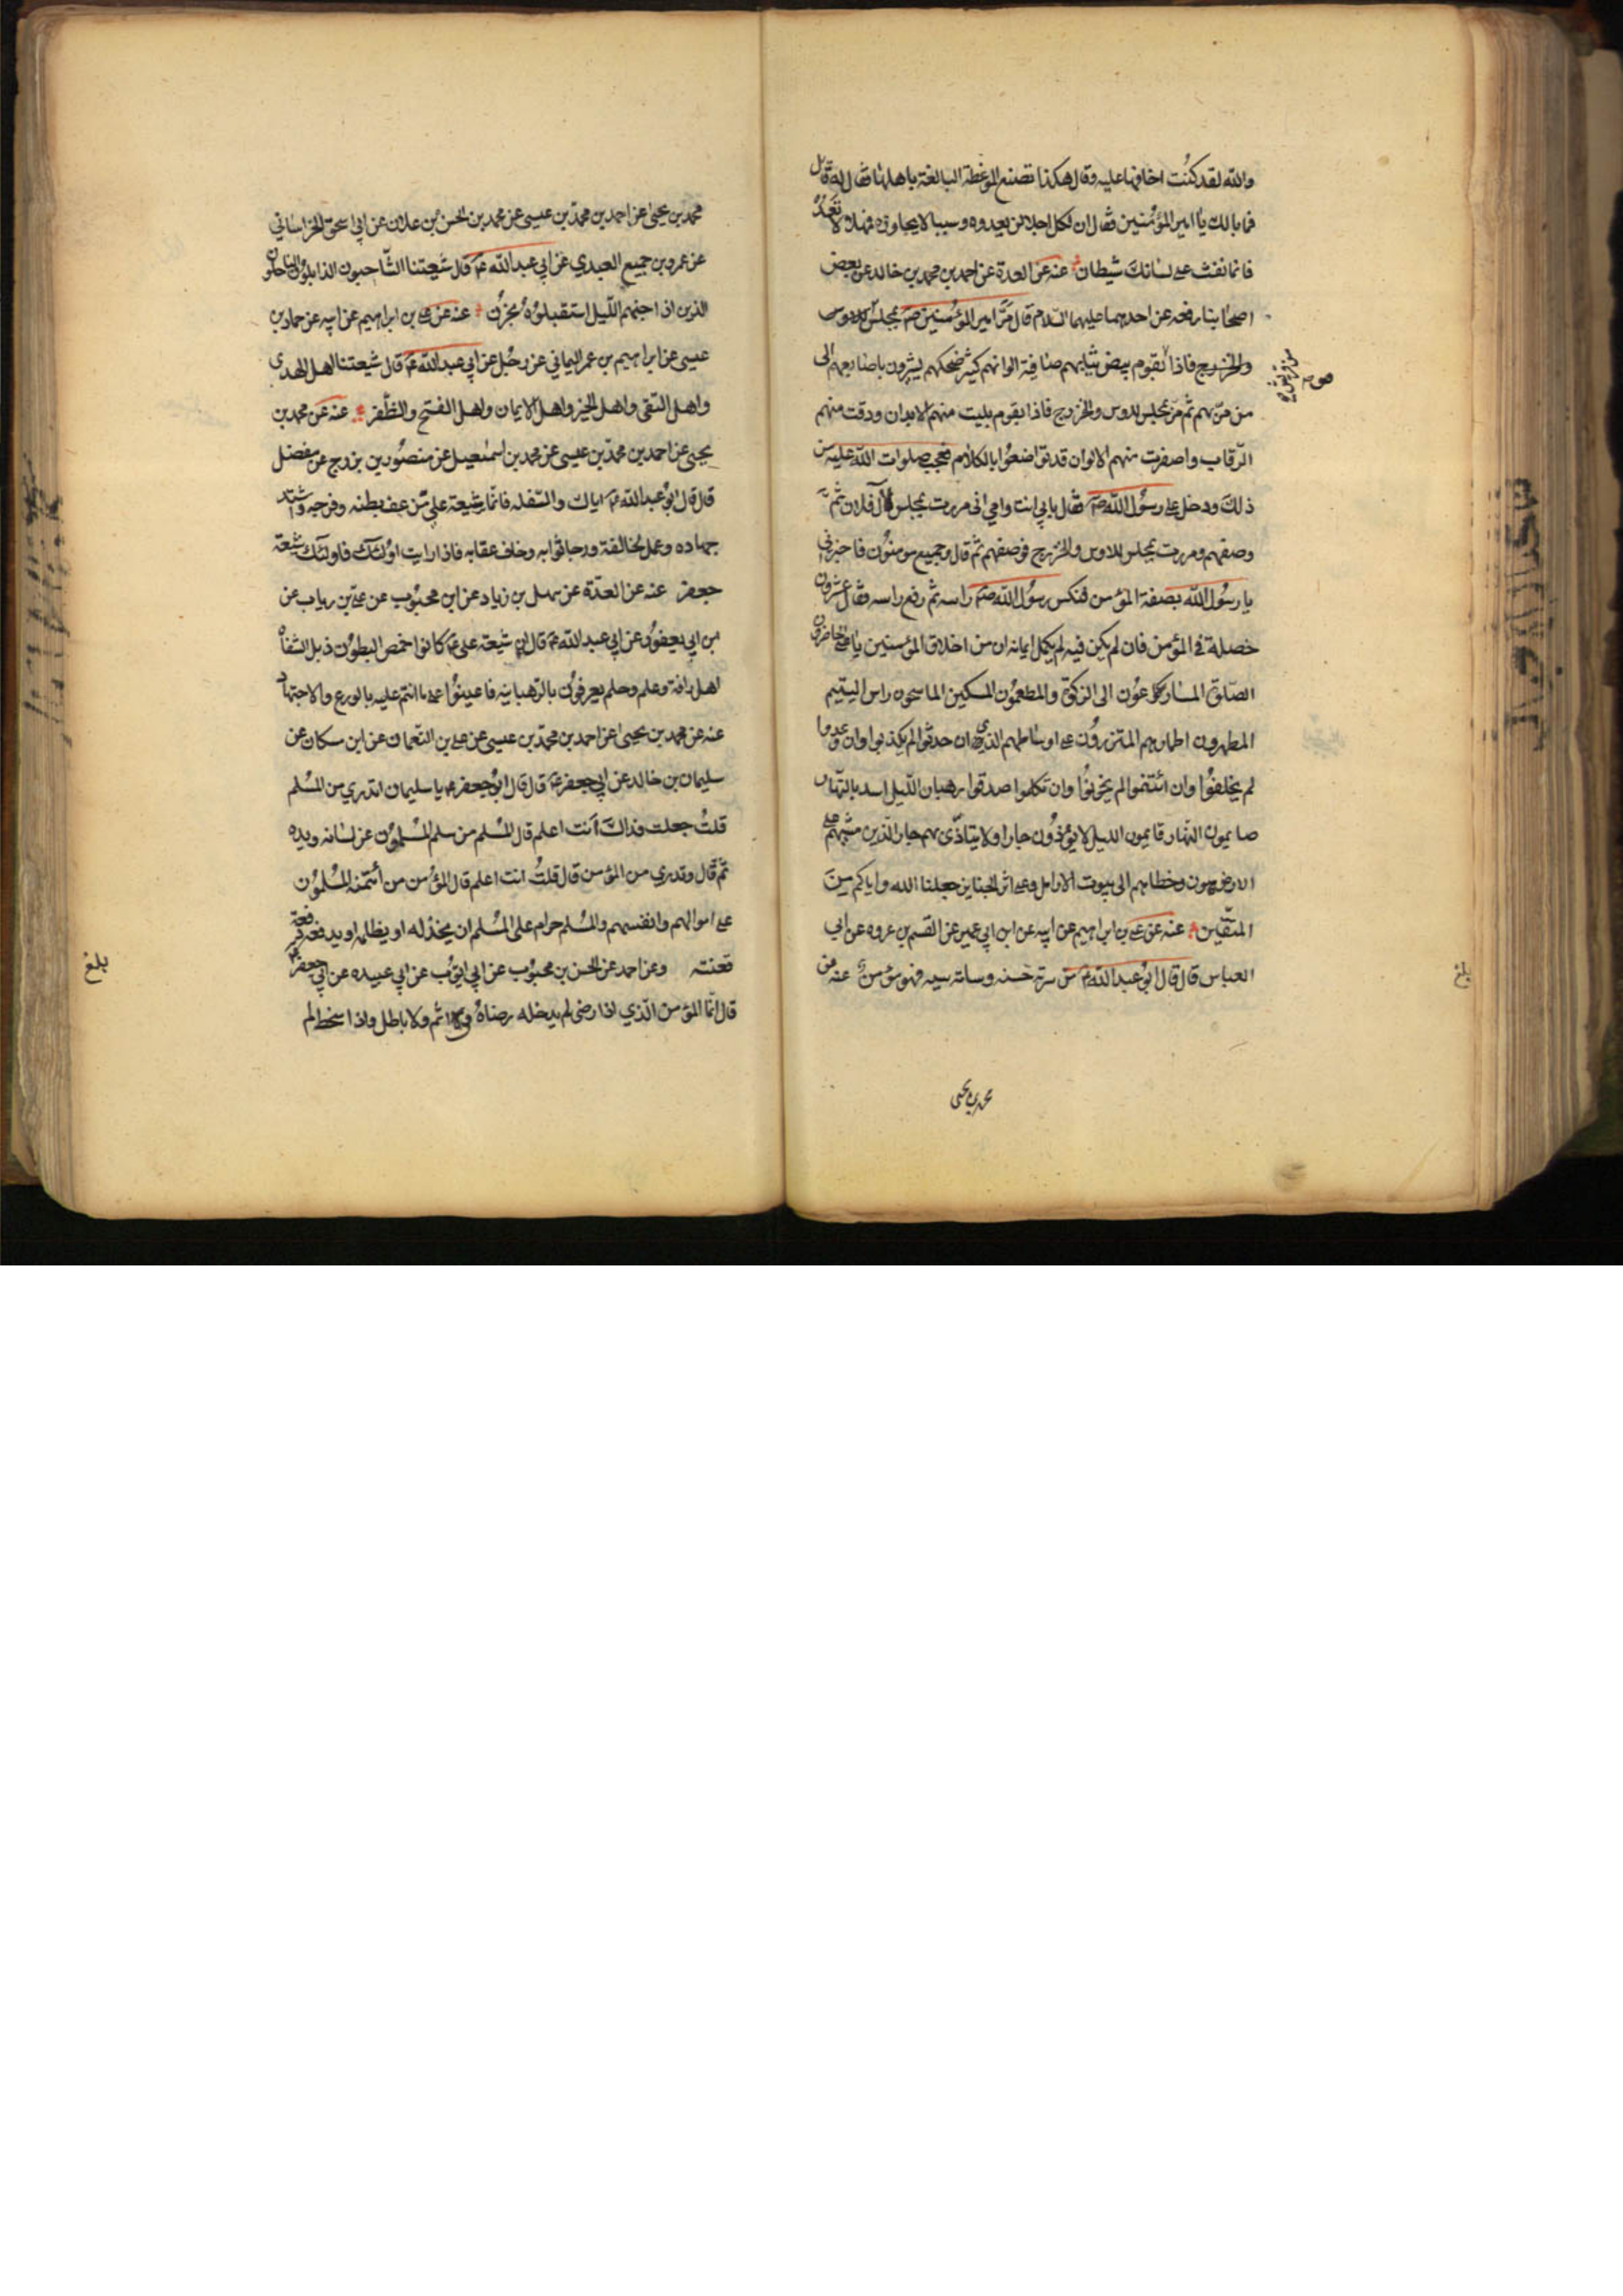 والله لقد كُنت اخافها عليه وقال هكذا تصنع الموعظة البالغة باهلها فقال له قايل
فما بالك يا امير المؤمنين فقال ان لكل اجلا لن يعدوه وسببا لا يجاوزه فمهلا لا تعد
فانما نفث على لسانك شيطان عنه عن العدة عن احمد بن محمد بن خالد عن بعض
اصحابنا رفعه عن احدهما عليهما السلام قال مرَّ امير المؤمنين صم بمجلس
والخزرج فاذا بقوم بيض ثيابهم صافية الوانهم كثير ضحكهم يشيرون باصابعهم الى
من مرّ بهم ثم مرّ بمجلس للاوس والخزرج فاذا بقوم بليت منهم الابدان ودقت منهم
الرّقاب واصفرت منهم الالوان قد تواضعوُا بالكلام فعجب صلوات الله عليه من
ذلك ودخل على رسوُل الله صم فقال بابي انت وامي انى مررت بمجلس لآل فلان ثمَّ
وصفهم ومررت بمجلس للاوس والخزرج فوصفهم ثم قال وجميع مومنوُن فاخبرني
يا رسوُل الله بصفة المؤمن فنكس رسوُل الله صم راسه ثم رفع راسه فقال عشروُن
خصلة في المؤمن فان لم يكن فيه لم يكمل ايمانه ان من اخلاق المؤمنين يا على الحاضرون
الصّلوة المسارعوُن الى الزكوة والمطعموُن المسكين الماسحون راس اليتيم
المطهرون اطمارهم المتزروُن على اوساطهم الذين ان حدثوا لم يكذبوا وان وعدوا
لم يخلفوُا وان ائتمنوا لم يخونوُا وان تكلموا صدقوا رهبان اللّيل اسد بالنّهار
صايمون النّهار قايمون الليل لا يوُذوُن جارا ولا يتاذّى بهم جار الّذين مشيهم على
الارض هون وخطاهم الى بيوت الارامل وعلى اثر الجنايز جعلنا الله واياكم مِنَ
المتّقين عنه عن علي بن ابراهيم عن ابيه عن ابن ابي عمير عن القسم بن عروه عن ابي
العباس قال قال ابوُ عبد الله ع من سرته حَسنه وساته سيه فهو مؤمن عنه عن
محمد بن يحيى
محمد بن يحيىٰ عن احمد بن محمّد بن عيسى عن محمد بن الحسن بن علان عن ابي اسحق الخراساني
عن عمرو بن جميع العبدي عن ابي عبد الله ع قال شيعتنا الشّاحبون الذابلوُن الناحلون
الذين اذا جنهم اللّيل استقبلوُه بحُزن عنه عن علي بن ابراهيم عن ابيه عن حماد بن
عيسى عن ابراهيم بن عمر اليماني عن رجُل عن ابي عبد الله ع قال شيعتنا اهل الهدى
واهل التقى واهل الخير واهل الايمان واهل الفتح والظّفر عنه عن محمد بن
يحيى عن احمد بن محمّد بن عيسى عن محمد بن اسمٰعيل عن منصوُر بن بزرج عن مفضل
قال قال ابوُ عبد الله ع اياك والسّفله فانمّا شيعة علي مَن عف بطنه وفرجه واشتد
جهاده وعمل لخالقه ورجا ثوابه وخاف عقابه فاذا رايت اوُلئك فاولئك شيعة
جعفر عنه عن العدّة عن سهل بن زياد عن ابن محبوُب عن علي بن رياب عن
ابن ابي يعفوُر عن ابي عبد الله ع قال ان شيعة علي ع كانوا خمص البطوُن ذبل الشفاه
اهل رافة وعلم وحلم يعرفوُن بالرّهبانيه فاعينوُا على ما انتم عليه بالورع والاجتهاد
عنه عن محمد بن يحيىٰ عن احمد بن محمّد بن عيسى عن علي بن النّعمان عن ابن مسكان عن
سليمان بن خالد عن ابي جعفر ع قال قال ابوُ جعفر ع يا سليمان اتدري من المُسلم
قلتُ جعلت فداك أنت اعلم قال المُسلم من سلم المُسلموُن عن لسانه ويده
ثمَّ قال وتدري من المؤمن قال قلتُ انت اعلم قال المؤُمن من أئتمنه المُسلموُن
على اموالهم وانفسهم والمُسلم حرام على المُسلم ان يخذله او يظلمه او يدفعه دفعة
تعنته وعن احمد عن الحسن بن محبوُب عن ابي ايوُب عن ابي عبيده عن ابي جعفر ع
قال انمّا المؤمن الّذي اذا رضى لم يدخله رضاهُ في اثم ولا باطل واذا سخط لم
بلغ
بلغ